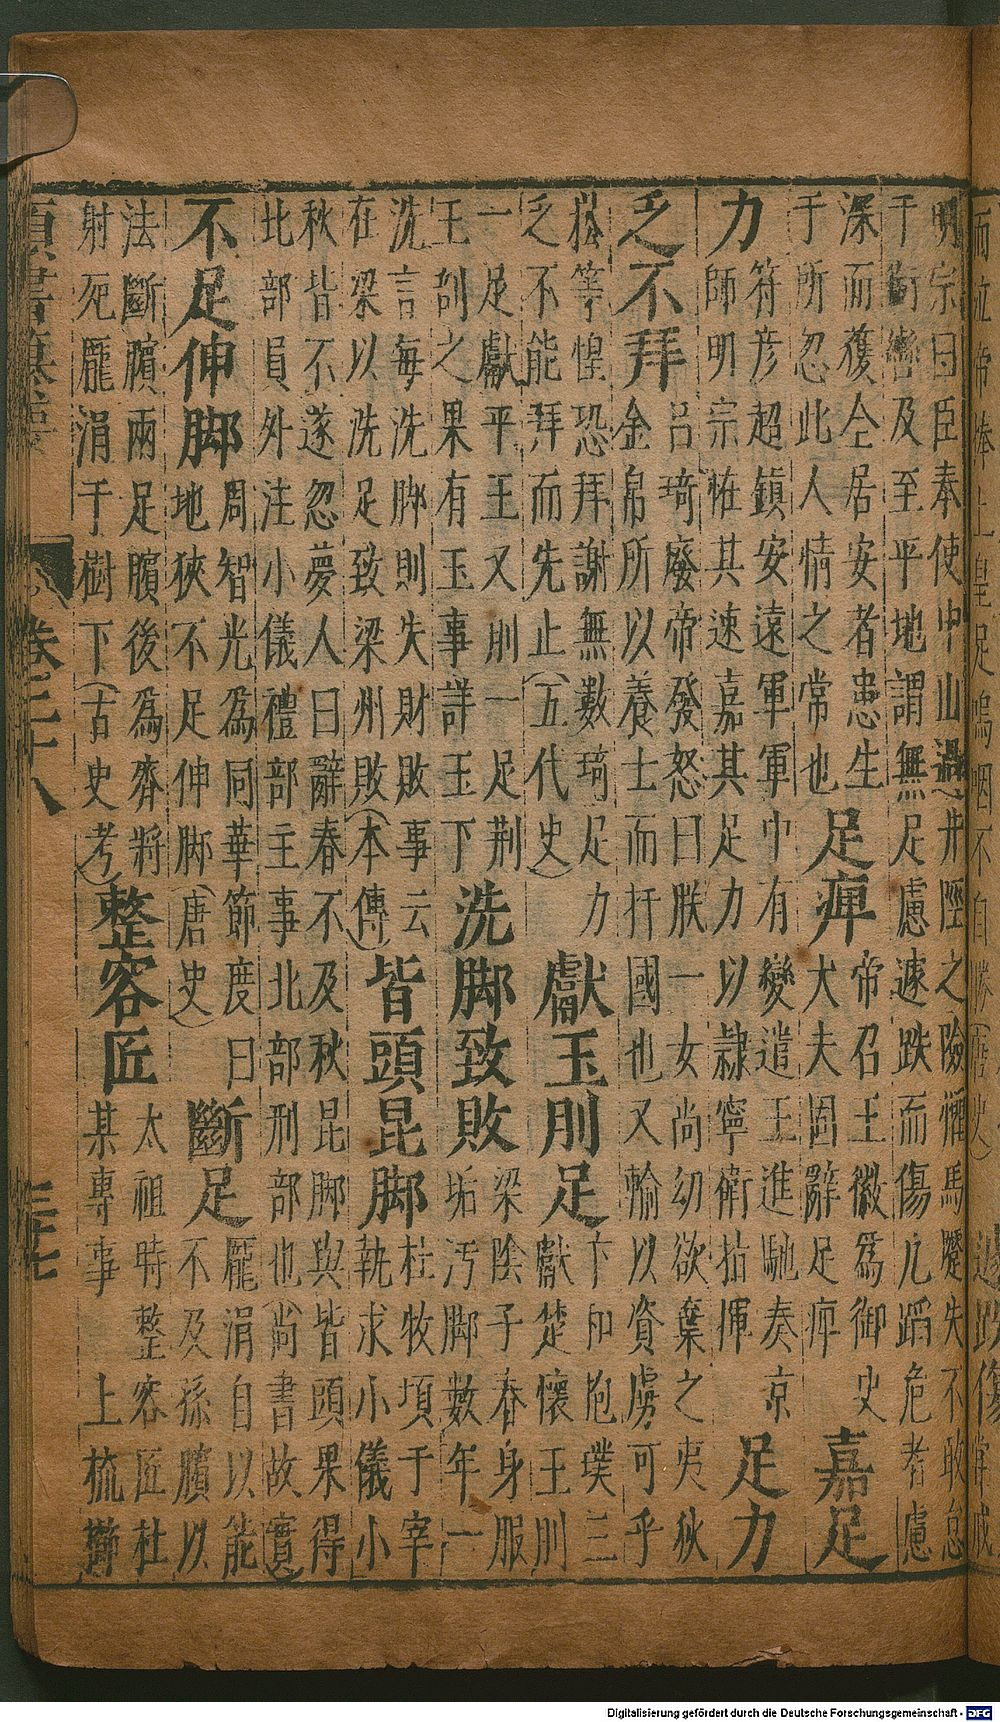 明宗曰臣奉使中山過井陘之險懼馬蹶失不敢怠
于銜轡及至平地謂無足慮遽跌而傷凡蹈危者慮
深而獲仝居安者患生
于所忽此人情之常也
足痺
帝召王徽為御史
大夫固辭足痺
嘉足
力
符彥超鎮安遠軍軍中有變遣王進馳奏京
師明宗恠其速嘉其足力以隷寧衛指揮
足力
乏不拜
呂琦廢帝發怒曰朕一女尚幼欲棄之夷狄
金帛所以養士而扞國也又輸以資虜可乎
崧等惶恐拜謝無數琦足力
乏不能拜而先止(五代史)
獻玉刖足
卞和抱璞三
獻楚懷王刖
一足獻平王又刖一足荆
王剖之果有玉事詳玉下
洗脚致敗
梁陰子春身服
垢汚脚數年一
洗言每洗脚則失財敗事云
在梁以洗足致梁州敗(本傳)
皆頭昆脚
杜牧頃于宰
執求小儀小
秋皆不遂忽夢人曰辭春不及秋昆脚與皆頭果得
北部員外注小儀禮部主事北部刑部也(尚書故實)
不足伸脚
周智光為同華節度曰
地狹不足伸脚(唐史)
斷足
龐涓自以能
不及孫臏以
法斷臏兩足臏後為齊將
射死龐涓于樹下(古史考)
整容匠
太祖時整容匠杜
某專事上梳櫛
卷三十八
三十七
Digitalisierung gefördert durch die Deutsche Forschungsgemeinschaft - DFG